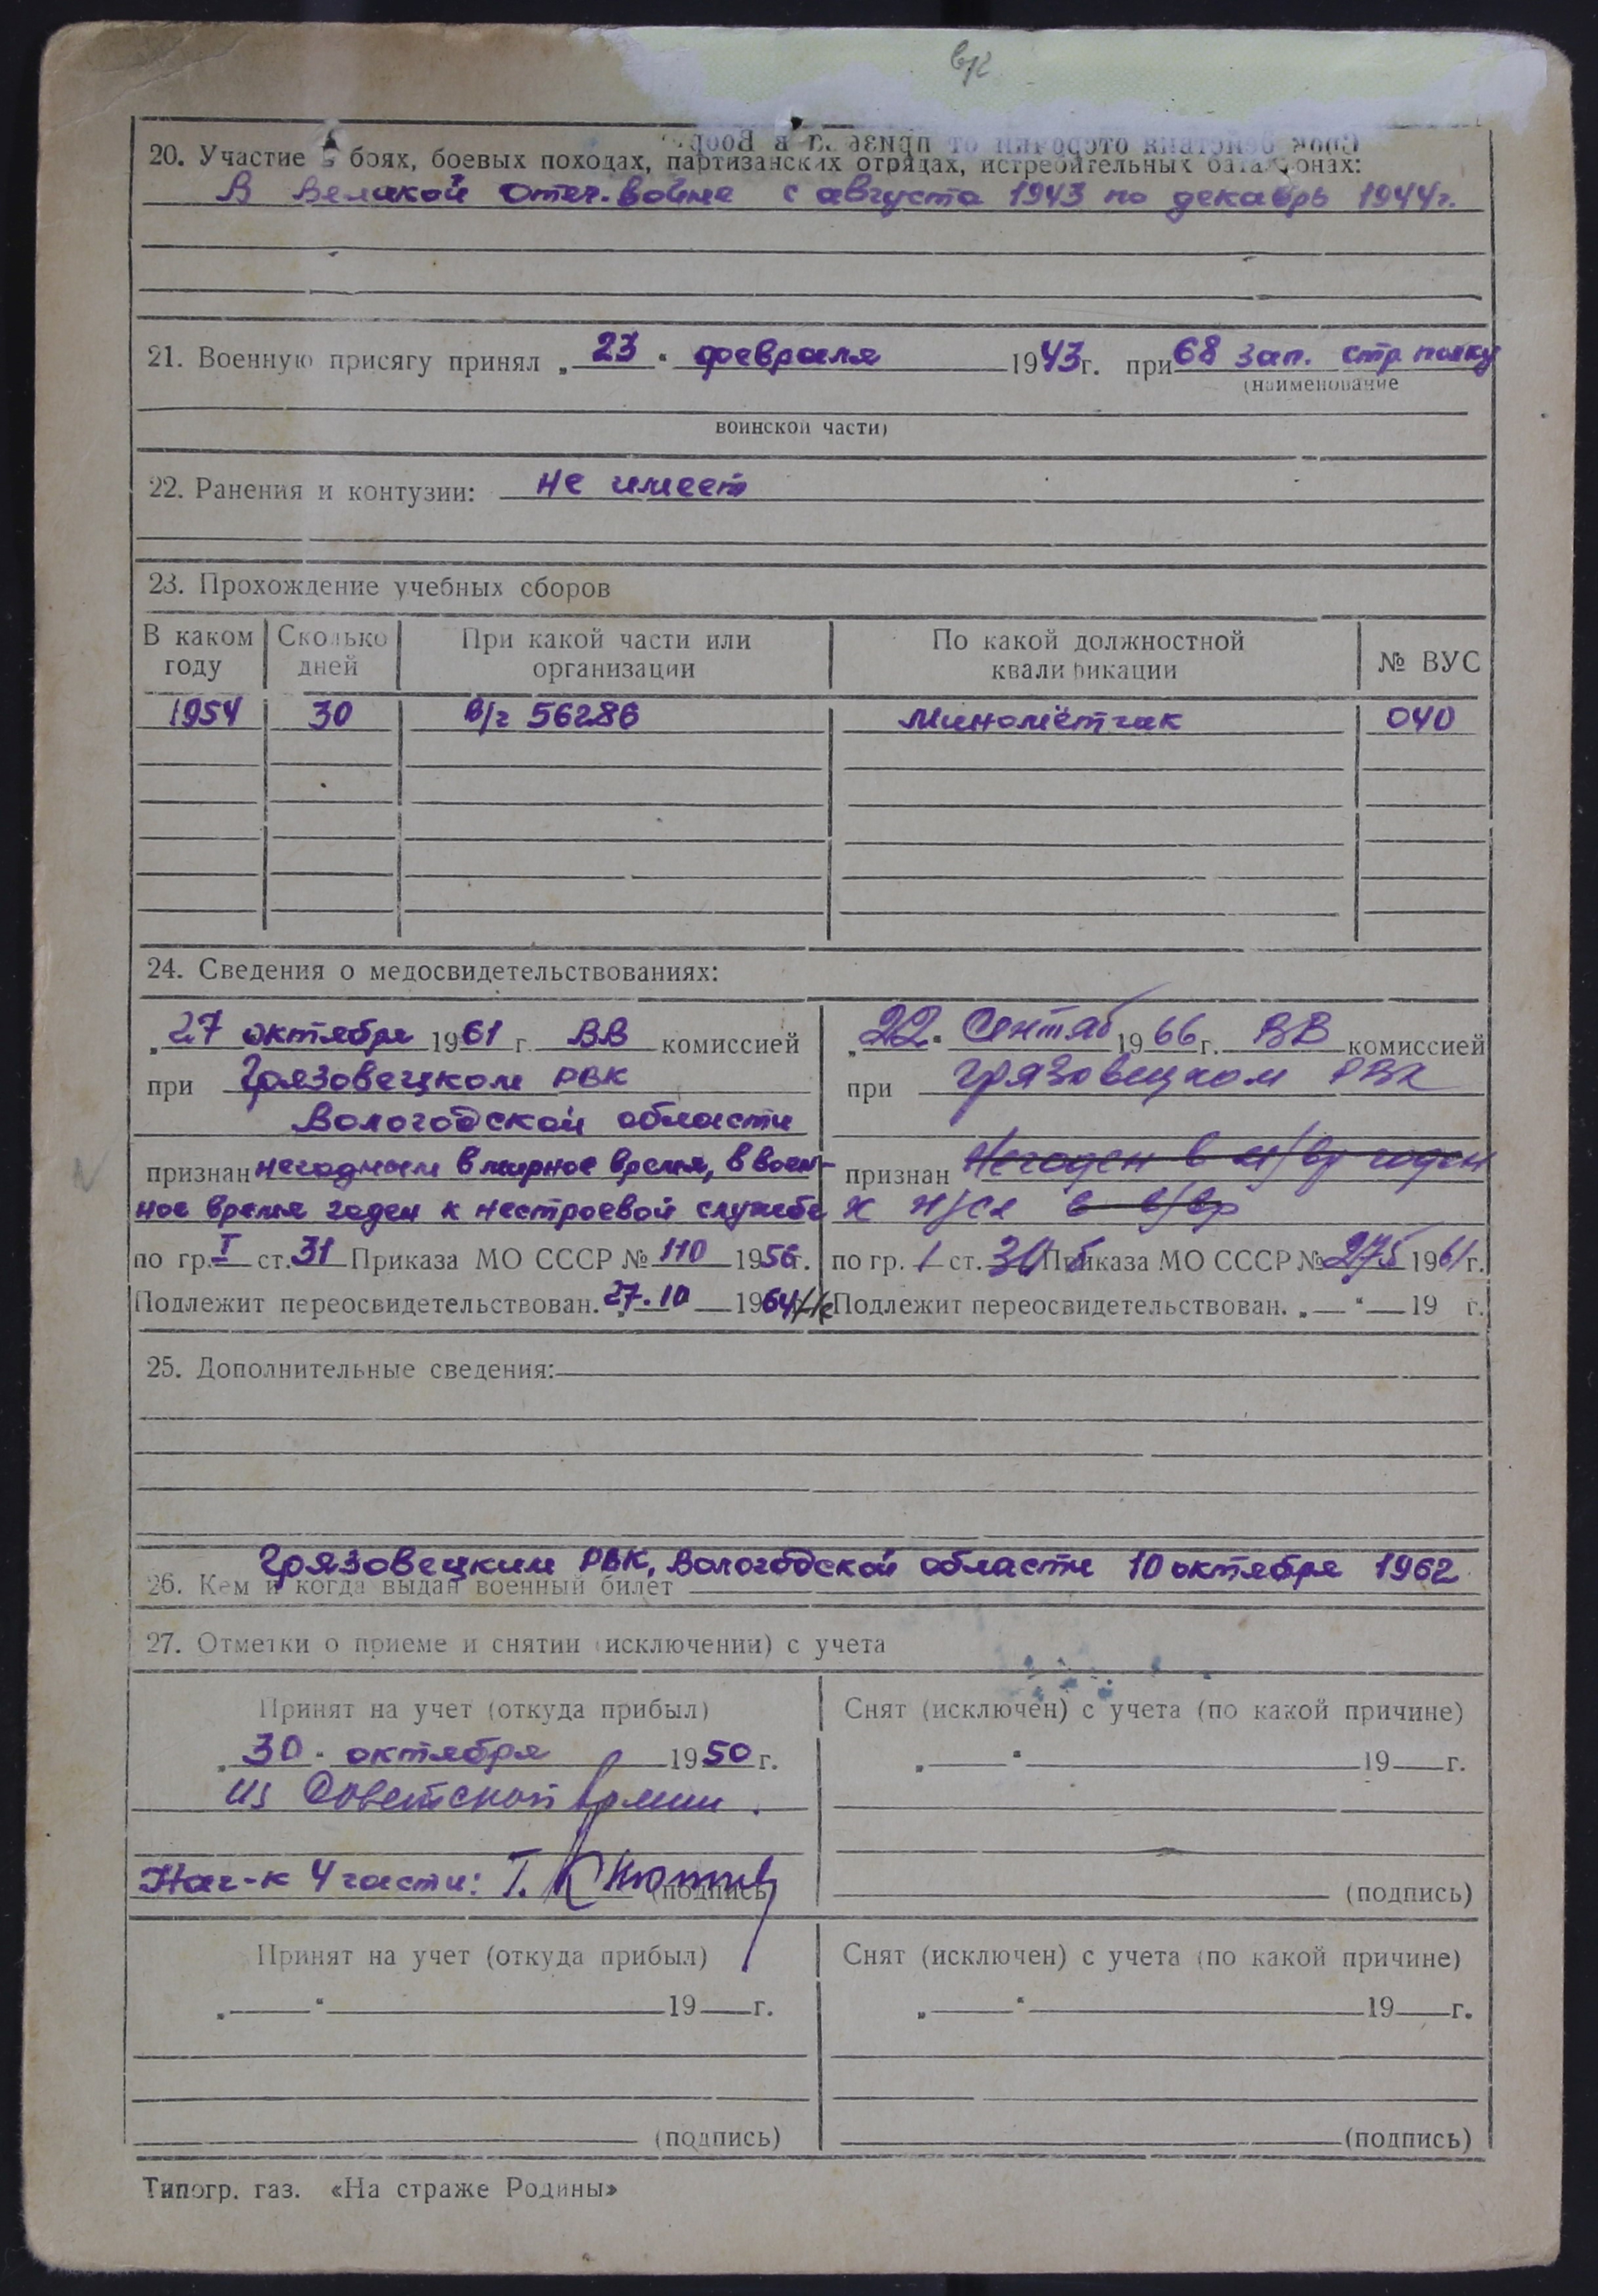 20. Участие в боях, боевых походах, партизанских отрядах, истребительных батальонах:
В Великой Отеч. войне с августа 1943 по декабрь 1944 г.
21. Военную присягу принял „23“ февраля 1943 г. при 68 зап. стр полку
(наименование
воинской части)
22. Ранения и контузии: не имеет
23. Прохождение учебных сборов
В каком году | Сколько дней | При какой части или организации | По какой должностной квалификации | № ВУС
1954 | 30 | в/ч 56286 | Миномётчик | 040
24. Сведения о медосвидетельствованиях:
„27 октября 1961 г. ВВ комиссией
при Грязовецком РВК
Вологодской области
признан негодным в мирное время, в воен-
ное время годен к нестроевой службе
по гр. I ст. 31 Приказа МО СССР № 110 1956 г.
Подлежит переосвидетельствован. „27.10 1964 г.
„22“ Сентяб 1966 г. ВВ комиссией
при Грязовецком РВК
признан Негоден в м/вр годен
к н/сл в в/вр
по гр. 1 ст. Приказа МО СССР № 275 1961 г.
Не Подлежит переосвидетельствован. „ “ 19 г.
25. Дополнительные сведения:
Грязовецким РВК, Вологодской области 10 октября 1962
26. Кем и когда выдан военный билет
27. Отметки о приеме и снятии (исключении) с учета
Принят на учет (откуда прибыл)
„30“ октября 1950 г.
из Советской Армии.
Нач-к 4 части: Т.
(подпись)
Снят (исключен) с учета (по какой причине)
„ “ 19 г.
(подпись)
Принят на учет (откуда прибыл)
„ “ 19 г.
(подпись)
Снят (исключен) с учета (по какой причине)
„ “ 19 г.
(подпись)
Типогр. газ. «На страже Родины»